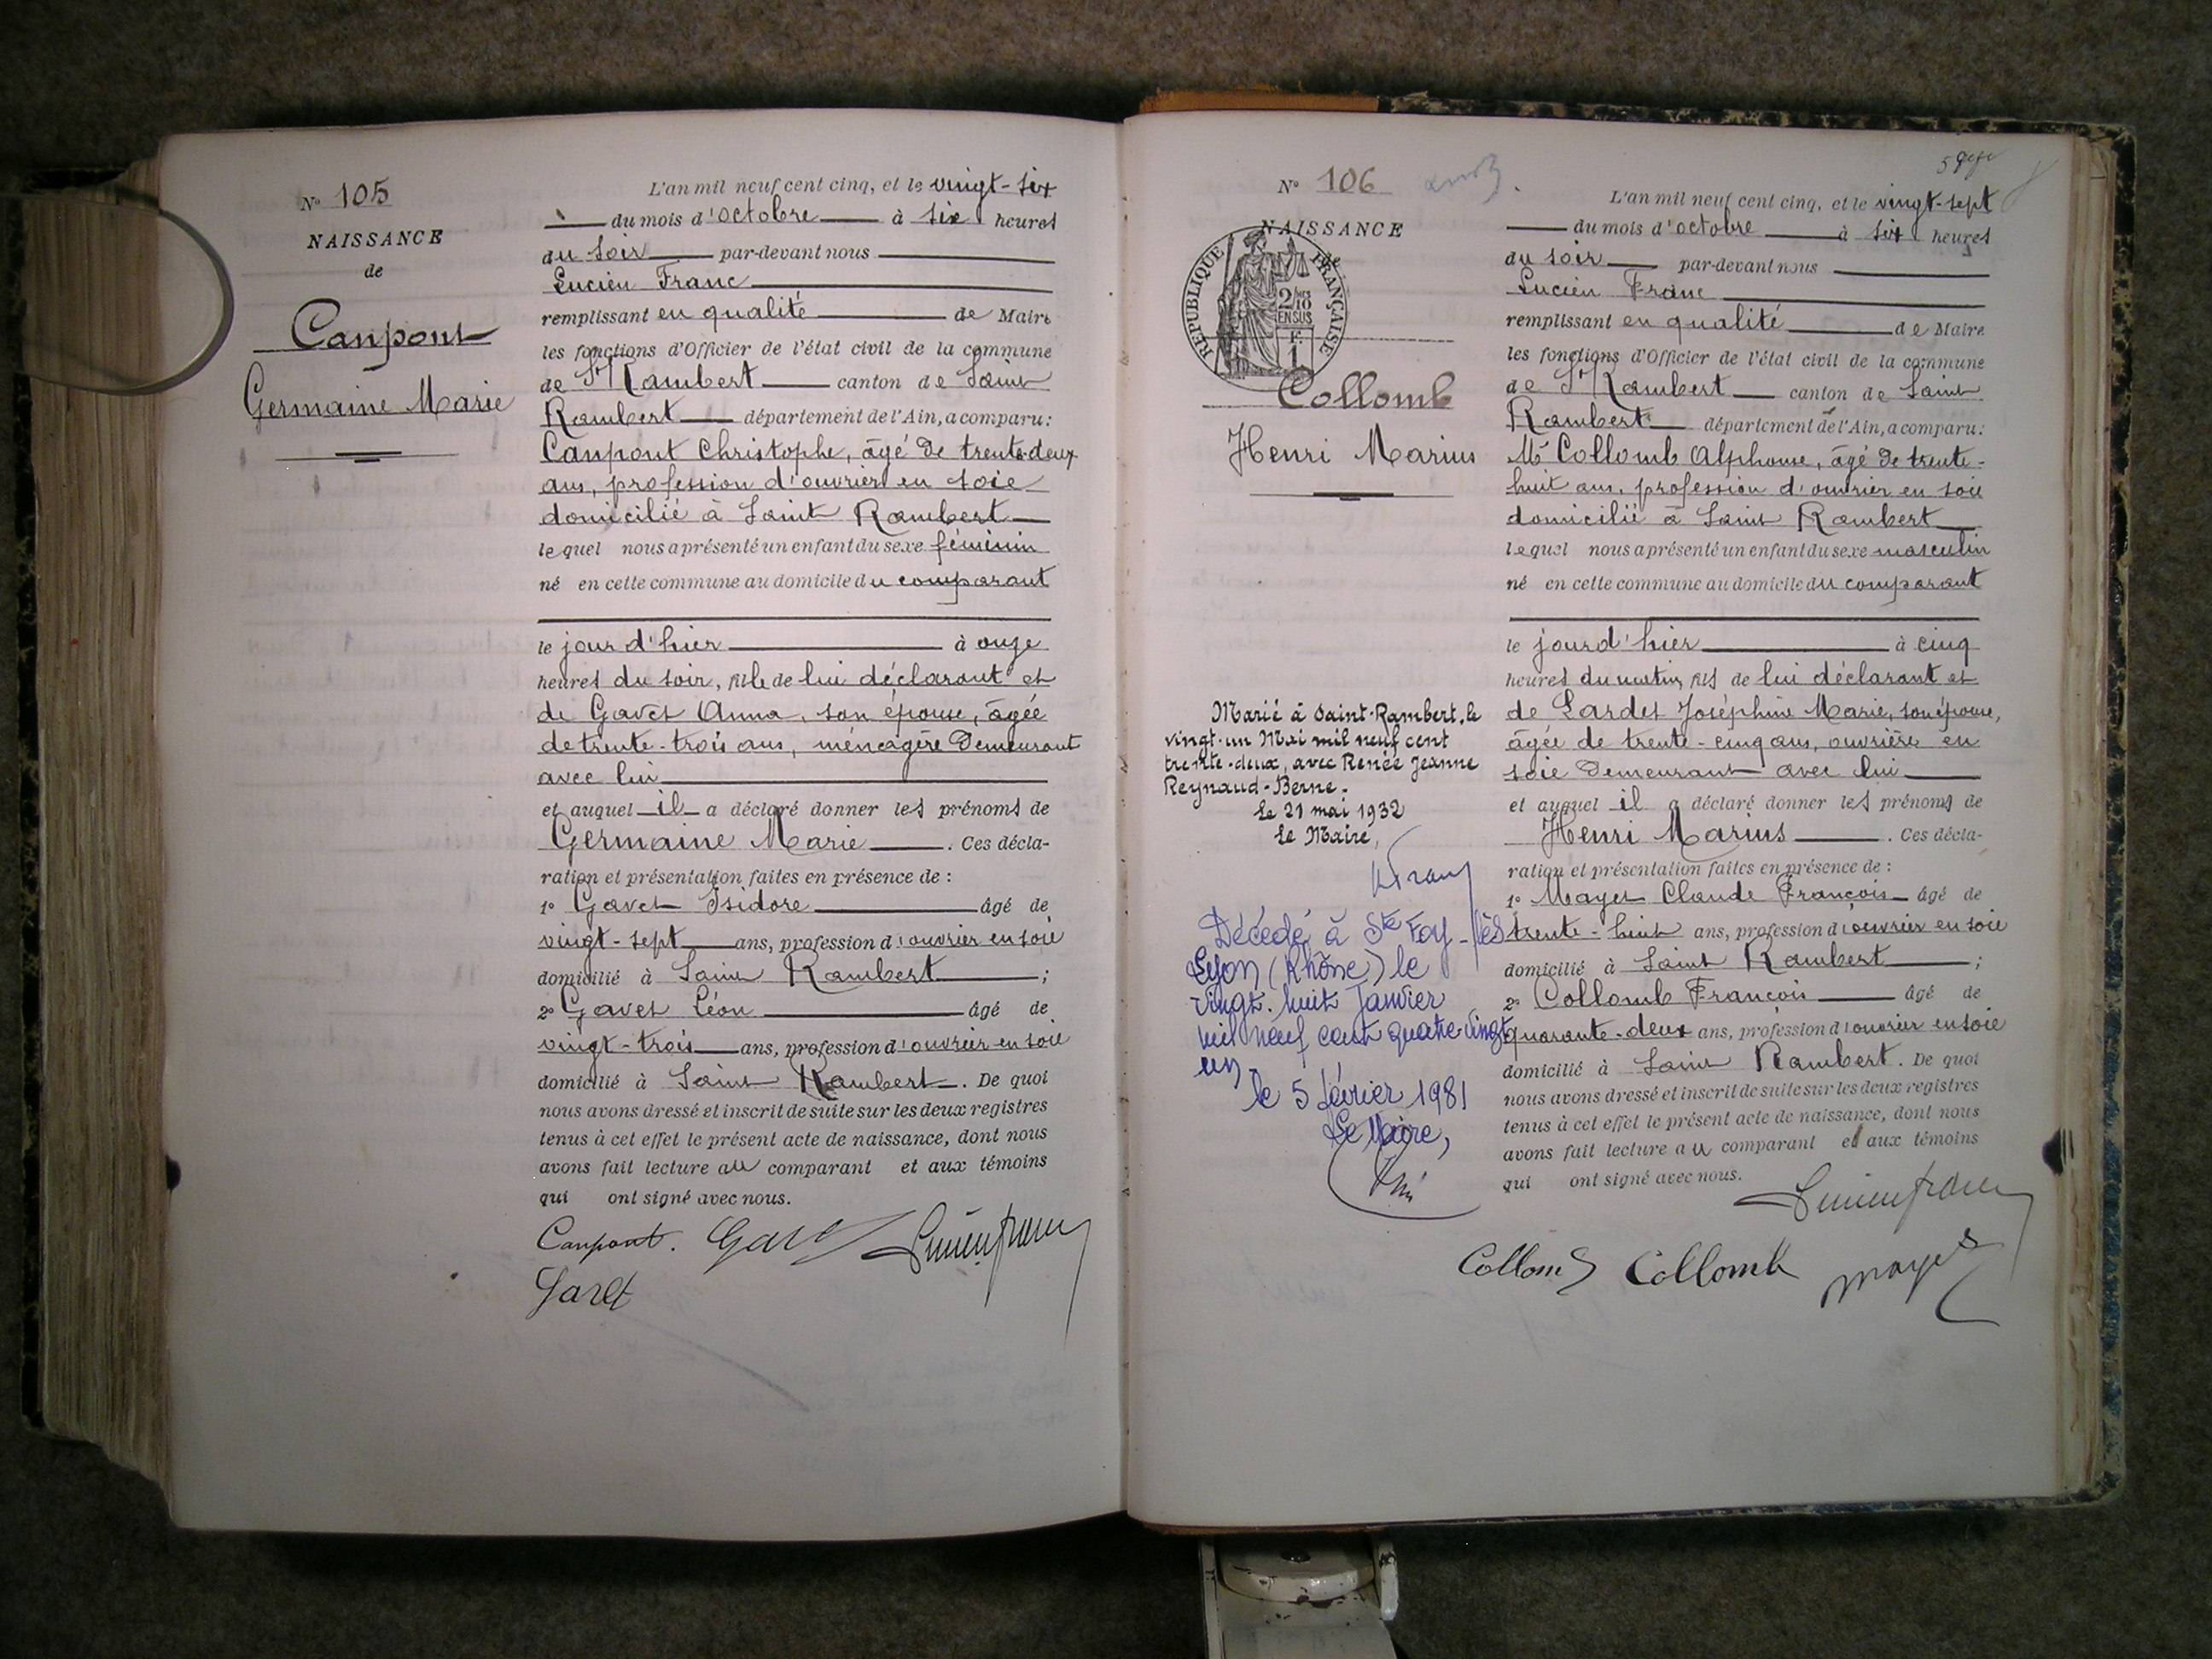 N° 105
NAISSANCE
de
Canpont
Germaine Marie
L'an mil neuf cent cinq, et le vingt-six
du mois d'octobre à six heures
du soir par-devant nous
Lucien Franc
remplissant en qualité de Maire
les fonctions d'Officier de l'état civil de la commune
de St Rambert canton de Saint
Rambert département de l'Ain, a comparu:
Canpont Christophe, âgé de trente-deux
ans, profession d'ouvrier en soie
domicilié à Saint Rambert
lequel nous a présenté un enfant du sexe féminin
né en cette commune au domicile du comparant
le jour d'hier à onze
heures du soir, fille de lui déclarant et
de Gavet Anna, son épouse, âgée
de trente-trois ans, ménagère demeurant
avec lui
et auquel il a déclaré donner les prénoms de
Germaine Marie. Ces décla-
ration et présentation faites en présence de :
1° Gavet Isidore âgé de
vingt-sept ans, profession d'ouvrier en soie
domicilié à Saint Rambert ;
2° Gavet Léon âgé de
vingt-trois ans, profession d'ouvrier en soie
domicilié à Saint Rambert. De quoi
nous avons dressé et inscrit de suite sur les deux registres
tenus à cet effet le présent acte de naissance, dont nous
avons fait lecture au comparant et aux témoins
qui ont signé avec nous.
Canpont. Gavet Lucien franc
Gavet
N° 106
NAISSANCE
de
REPUBLIQUE FRANÇAISE
2/10
EN SUS
F.
1
Collomb
Henri Marius
Marié à Saint-Rambert, le
vingt-un Mai mil neuf cent
trente-deux, avec Renée Jeanne
Reynaud-Berne.
Le 21 mai 1932
Le Maire,
Décédé à Ste Foy-lès
Lyon (Rhône) le
vingt-huit Janvier
mil neuf cent quatre vingt
un.
le 5 février 1981
Le Maire,
L'an mil neuf cent cinq, et le vingt-sept
du mois d'octobre à six heures
du soir par-devant nous
Lucien Franc
remplissant en qualité de Maire
les fonctions d'Officier de l'état civil de la commune
de St Rambert canton de Saint
Rambert département de l'Ain, a comparu:
Mr Collomb Alphonse, âgé de trente-
huit ans, profession d'ouvrier en soie
domicilié à Saint Rambert
lequel nous a présenté un enfant du sexe masculin
né en cette commune au domicile du comparant
le jour d'hier à cinq
heures du matin, fils de lui déclarant et
de Lardet Joséphine Marie, son épouse,
âgée de trente-cinq ans, ouvrière en
soie demeurant avec lui
et auquel il a déclaré donner les prénoms de
Henri Marius. Ces décla-
ration et présentation faites en présence de :
1° Mayet Claude François âgé de
trente-huit ans, profession d'ouvrier en soie
domicilié à Saint Rambert ;
2° Collomb François âgé de
quarante-deux ans, profession d'ouvrier en soie
domicilié à Saint Rambert. De quoi
nous avons dressé et inscrit de suite sur les deux registres
tenus à cet effet le présent acte de naissance, dont nous
avons fait lecture au comparant et aux témoins
qui ont signé avec nous.
Lucien franc
Collomb Collomb Mayet